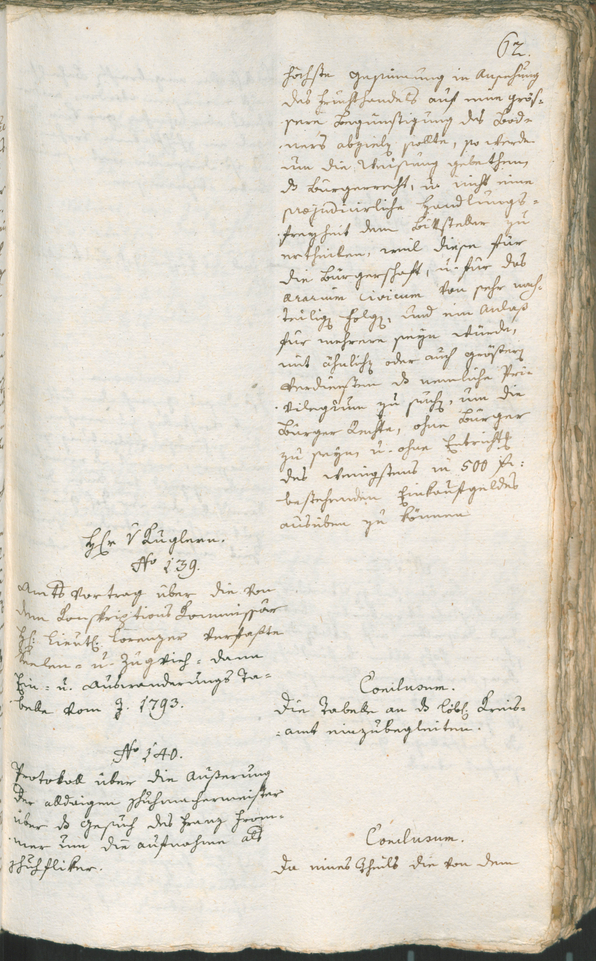 62.
höchste Gesinnung in Ansehung
des Fruchthandels auf eine grös-
sere Begünstigung des Bod-
ners abzielen sollte, so werde
um die Weisung gebethen,
das Bürgerrecht, u. nicht eine
præjudicirliche Handlungs-
freyheit dem Bittsteller zu
ertheilen, weil diese für
die Bürgerschaft, u. für das
Ærarium civicum von sehr nach-
teilig Folg, und ein Anlaß
für mehrere seyn würde,
mit ähnlich oder auch größern
Verdiensten das nemliche Pri-
vilegium zu such, um die
Bürger Rechte, ohne Bürger
zu seyn, u. ohne Entrichtg
des wenigstens in 500 fl:
bestehenden Einkaufgeldes
ausüben zu können
Hr v Kuglern.
No 139.
Amts Vortrag über die von
dem Konskriptions Kommissär
H: Lieut: Lorenzer verfaßte
Seelen- u. Zugvieh- dann
Ein- u. Auswanderungs Ta-
belle vom J. 1793.
Conclusum.
Die Tabelle an das löbl. Kreis-
amt einzubegleiten.
No 140.
Protokoll über die Äußerung
der alldaigen Schuhmachermeister
über das Gesuch des Franz From-
mer um die Aufnahme als
Schuhfliker.
Conclusum.
Da eines Theils die von dem